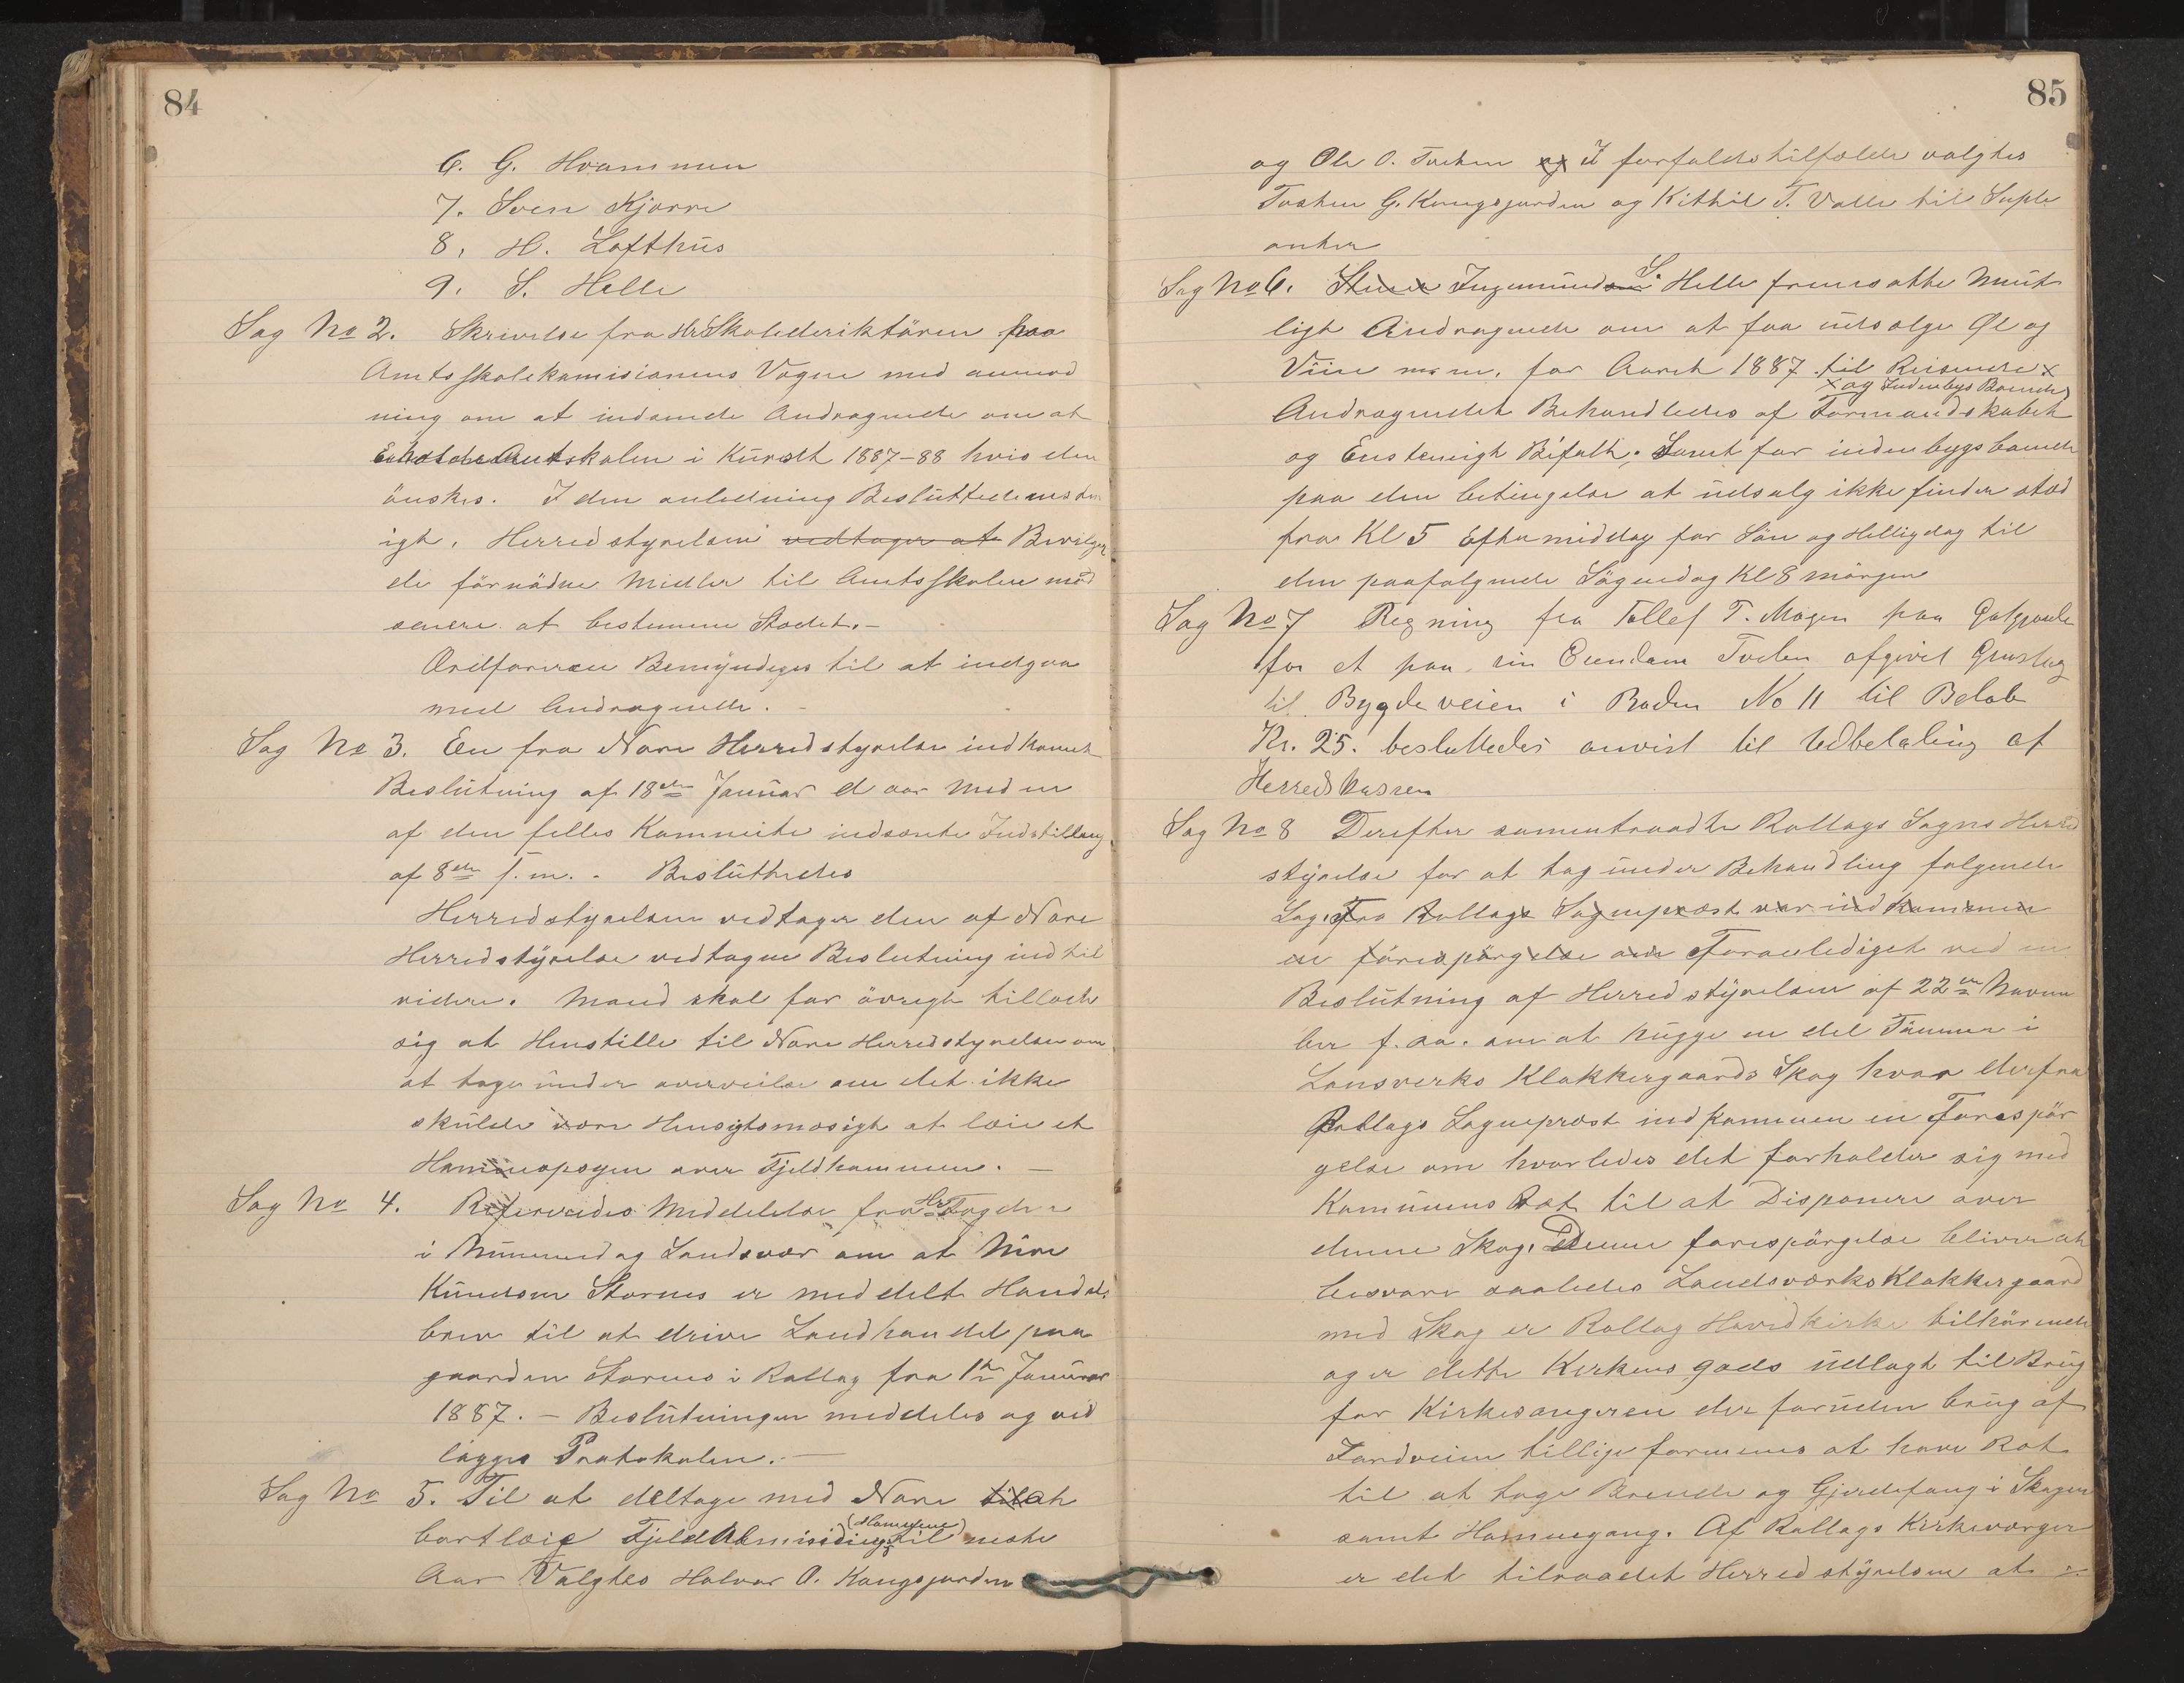 84
6. G. Hvammen
7. Sven Kjorre
8. H. Lofthus
9. S. Helle
Sag No 2. Skrivelse fra Hr Skolederiktören paa
Amtsskolekomisionens Vegne med anmod
ning om at indsende Andragende om at
Amtskolen i Kurdth 1887-88 hvis den
önskes. I den anledning Besluttede
igh. Herredstyrelsen vedtager at Bevilger
de förnödne Midler til Amtsskolen mod
senere at bestemme Stedet.-
Ordforeren Bemyndiges til at indgaa
med Andragende. -
Sag No 3. En fra Nore Herredstyrelse indkomet
Beslutning af 18de Januar d aar med en
af den felles Kommite indsente Indstilling
af 8de f.m. - Besluttedes
Herredstyrelsen vedtager den af Nore
Herredstyrelse vedtagne Beslutning indtil
videre. Mand skal for övrigt tillade
sig at Henstille til Nore Herredstyrelse om
at tage under overveilse om det ikke
skulde vere Hensigtsmesigt at leie et
Hamneopsyn over Fjeldhammen. -
Sag No 4. Refereredes Meddelelse fra Hr Fogden
i Numedag Landsver om at Nire
Knudsen Stornes er meddelt Handels
brev til at drive Landhandel paa
gaarden Stornes i Rollag fra 1te Januar
1887. - Beslutningen meddeles og ved
lægges Protokolen. -
Sag No 5. Til at deltage med Nore til at
(Hamnene)
bortleie Fjeld til neste
Aar Valgtes Halvor O. Kongsjorden
85
og Ole O. Tveten og I forfaldstilfælde valgtes
Tosten G. Kongsjorden og Kittil T. Valle til Suple
anter
Sag No 6. Steen Ingemund S. Helle fremsatte Munt
ligt Andragende om at faa udsalge Øl og
Viin m.m. for Aaret 1887 til Reisende x
x og Indenbygs Boende
Andragendet Behandledes af Formandskabet
og Enstemigt Bifalt. Samt for indenbygs boende
paa den betingelse at udsalg ikke finder sted
fra Kl 5 Eftermiddag for Sön og Helligdag til
den paafolgende Sögnedag Kl 8 morgen
Sag No 7 Regning fra Tollef T. Mogen paa
for et paa sin Eiendom Tveten afgivet Grustag
til Bygdeveien i Roden No 11 til Beløb
Kr. 25. besluttedes anvist til Udbetaling af
Herredskassen
Sag No 8 Derefter sammentraadte Rollags Sogns Herred
styrelse for at tag under Behandling folgende
Sag. Fra Rollags Sogneprest var indkommen
en förespörgelse om Foranlediget ved en
Beslutning af Herredstyrelsen af 22de Novem
ber f. aa. om at hugge en del Tömmer i
Lansverks Klokkergaards Skog hvor derfra
Rollags Sogneprest indkommen en Forespör
gelse om hvorledes det forholder sig med
Komunens Ret til at Disponere over
denne Skog. Denne forespörgelse bliver at
besvare saaledes Landsverks Klokkergaard
med Skog er Rollag Hovedkirke tilhörende
og er dette Kirkens gods udlagt til Brug
for Kirkesangeren der foruden brug af
Jordveien tillige formenes at have Ret
til at tage Brende og Gjerdefang i Skogen
samt Hamnegang. Af Rollags Kirkeverger
er det tilraadet Herredstyrelsen at